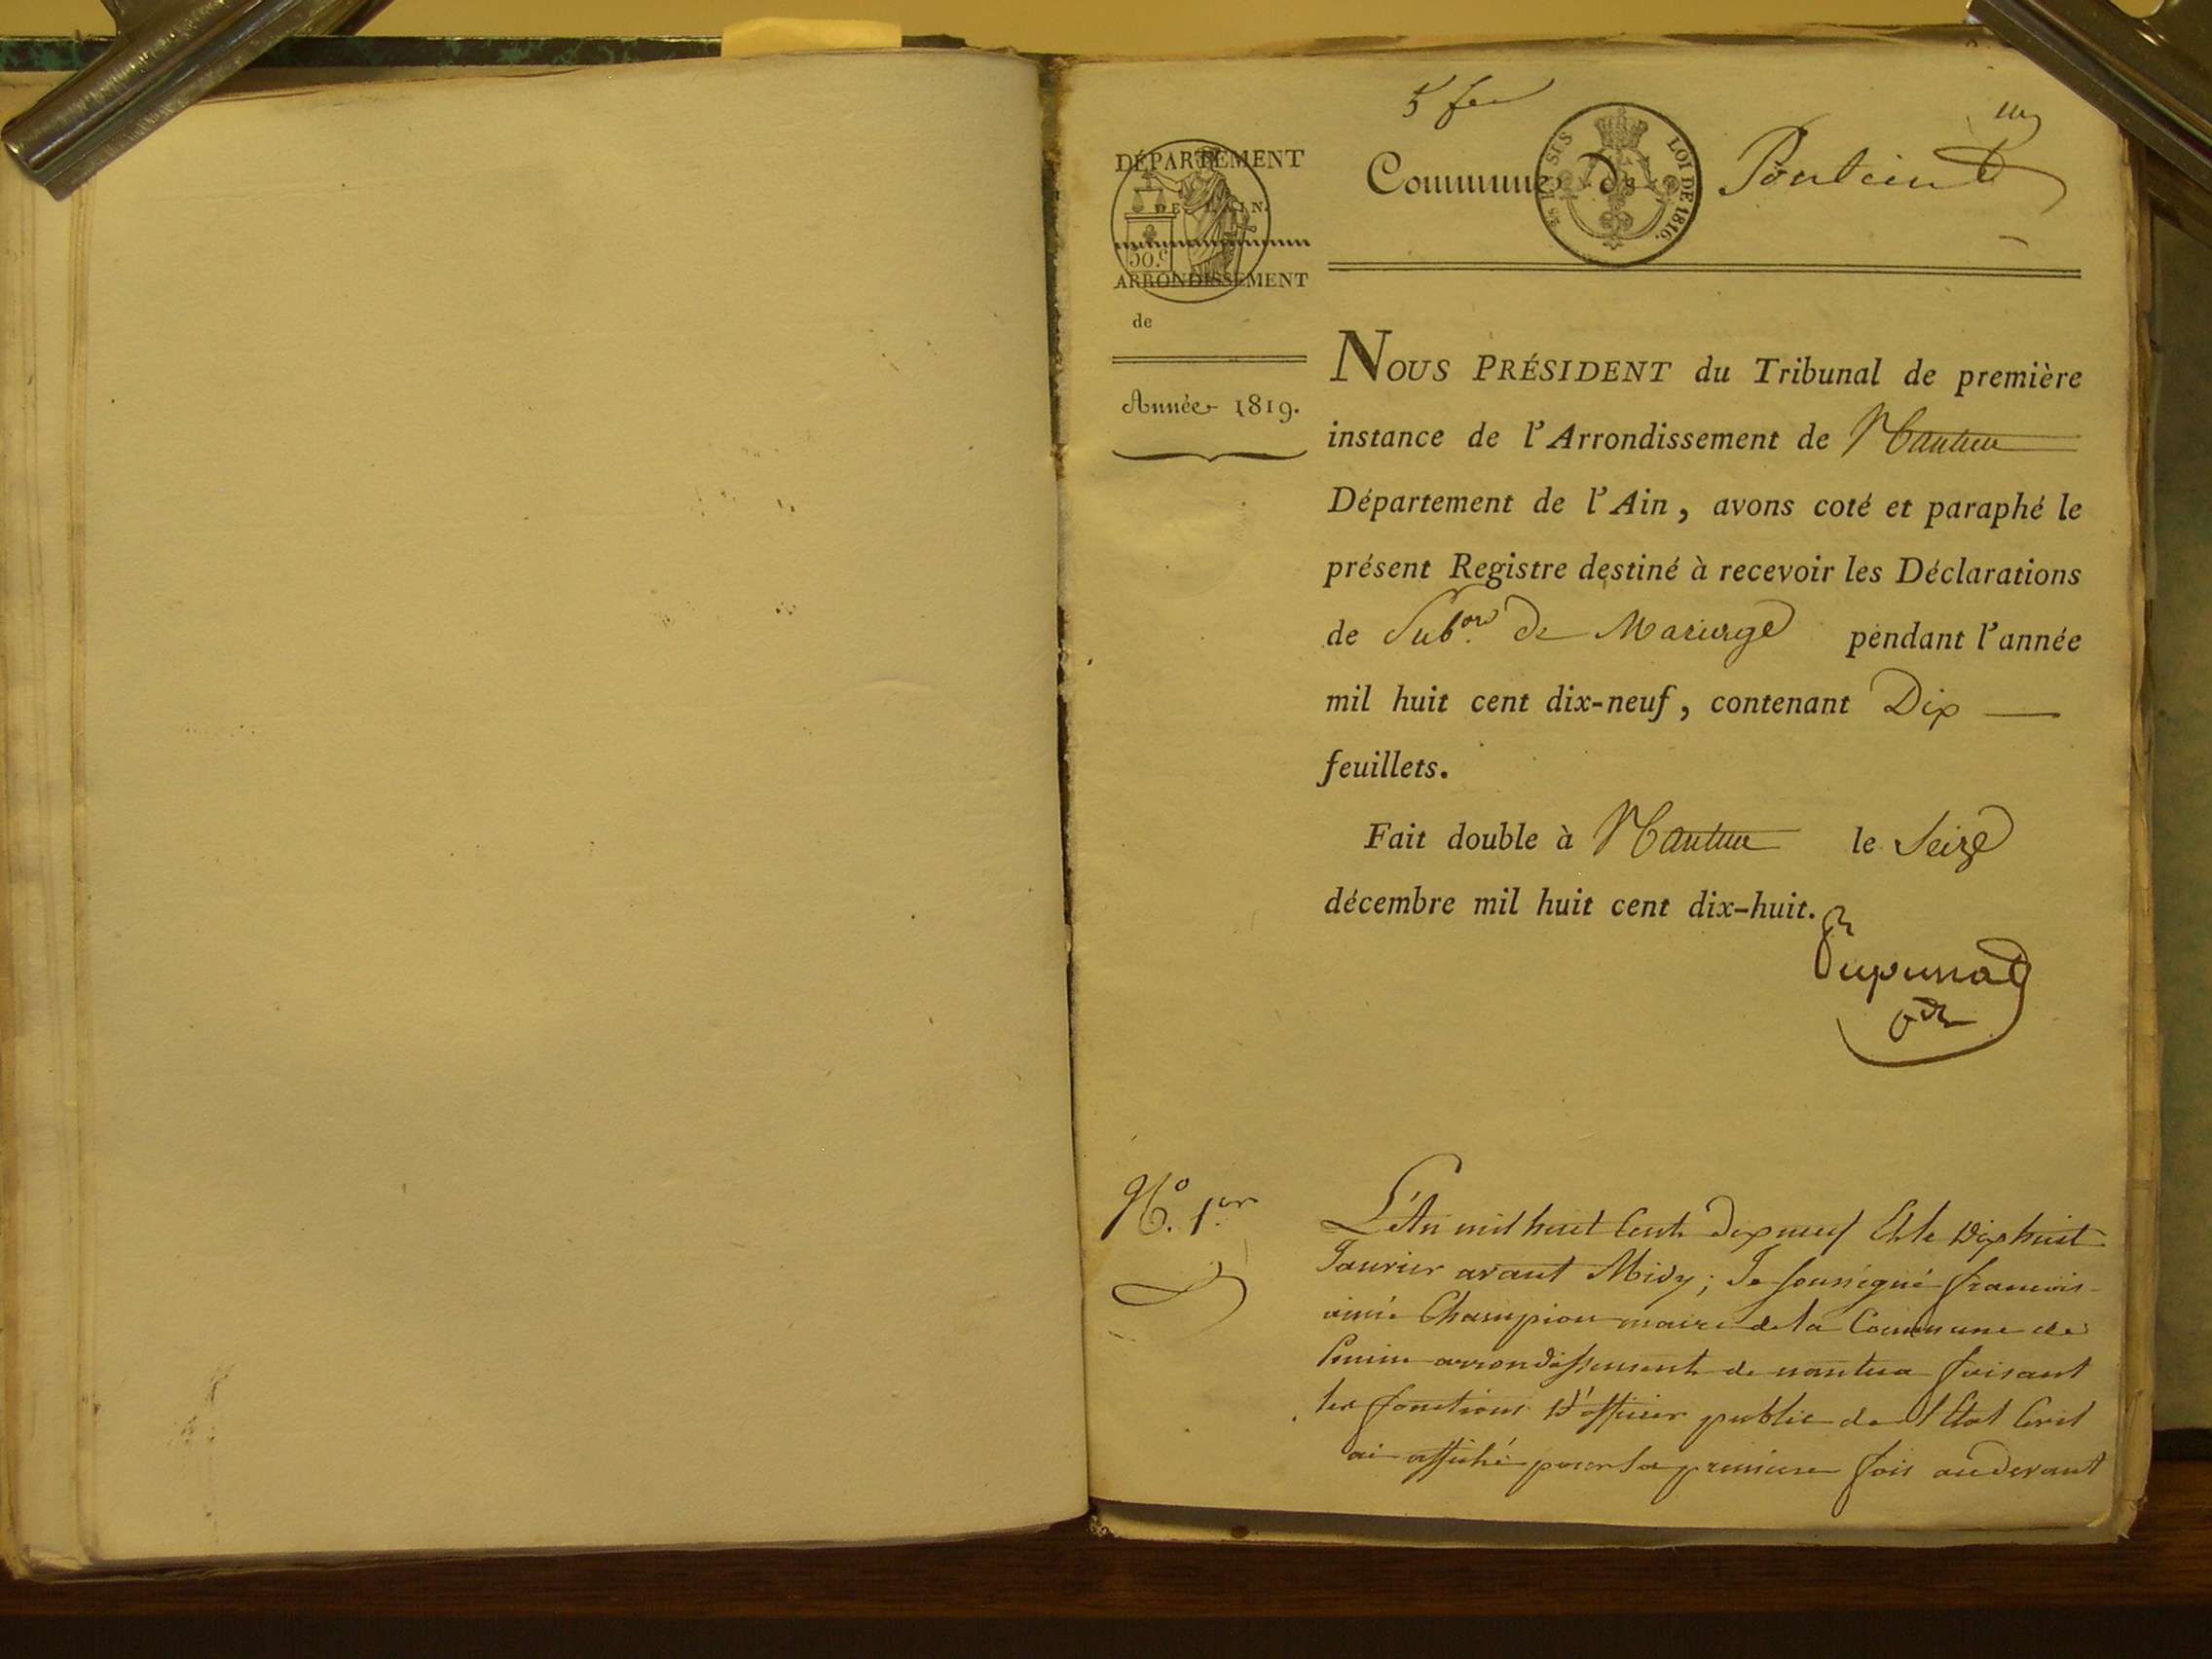 5 f
DÉPARTEMENT
DE L'AIN.
50.c
ARRONDISSEMENT
de
Année 1819.
Commune de
EN SUS
LOI DE 1816.
NOUS PRÉSIDENT du Tribunal de première
instance de l'Arrondissement de Nantua
Département de l'Ain, avons coté et paraphé le
présent Registre destiné à recevoir les Déclarations
de Pub.on de Mariage pendant l'année
mil huit cent dix-neuf, contenant Dix
feuillets.
Fait double à Nantua le Seize
décembre mil huit cent dix-huit.
N.o 1.er
L'An mil huit Cent Dix neuf Et le Dix huit
Janvier avant Midy; Je soussigné francois
aimé Champion maire de la Commune de
arrondissement de nantua faisant
les fonctions D'officier public de l'Etat Civil
ai affiché pour la premiere fois audevant